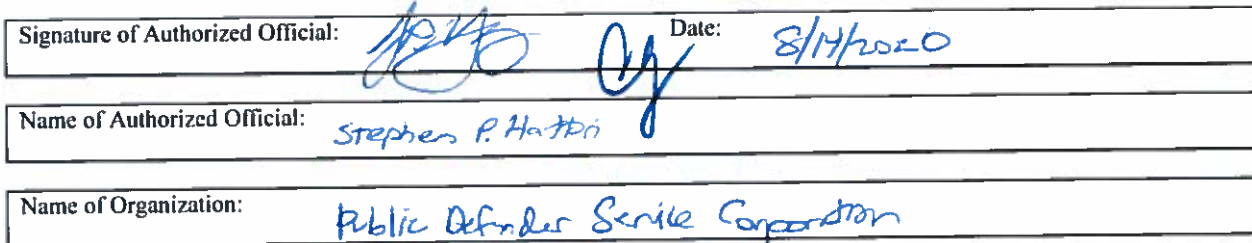 Signature of Authorized Official: Date: 8/14/2020
Name of Authorized Official: Stephen P. Hattori
Name of Organization: Public Defender Service Corporation